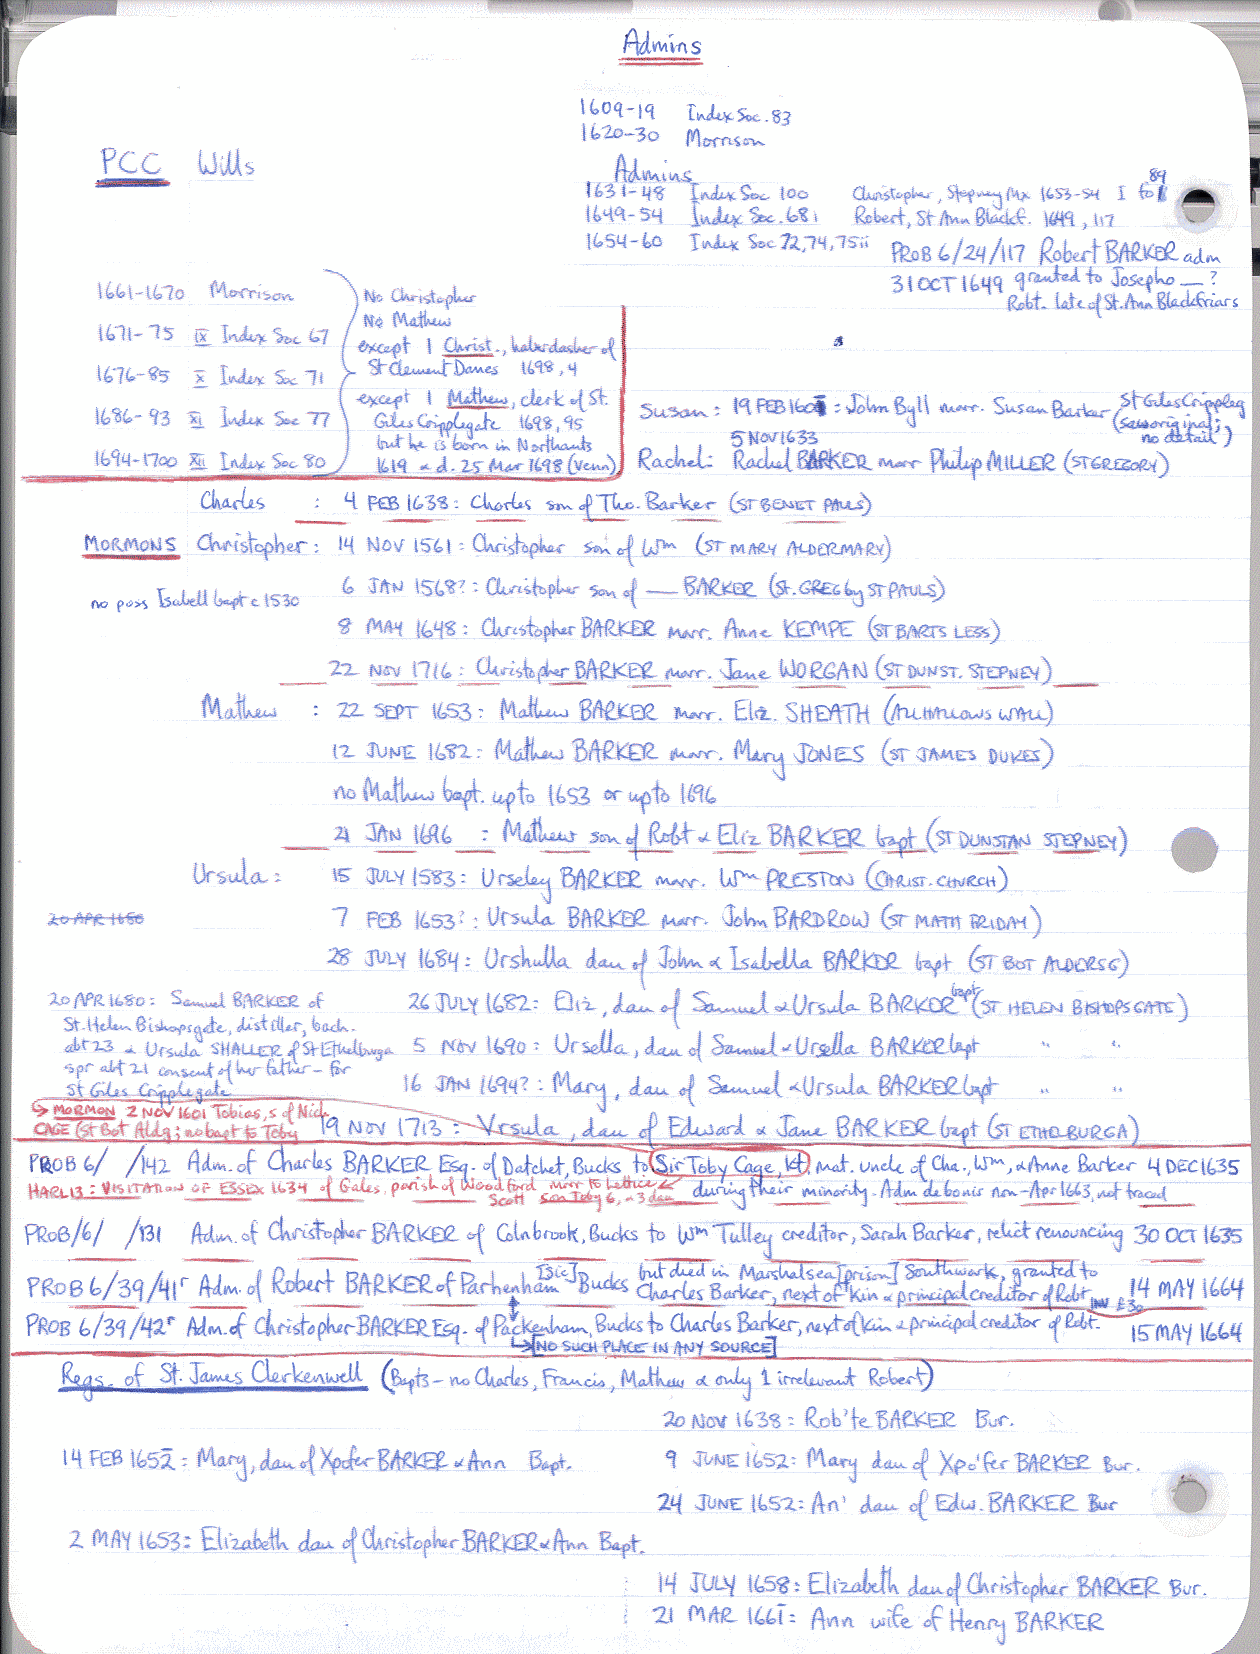 Admins
1609-19 Index Soc. 83
1620-30 Morrison
PCC Wills
Admins
1631-48 Index Soc 100 Christopher, Stepney Mx 1653-54 I fol 89
1649-54 Index Soc. 68i Robert, St Ann Blackf. 1649, 117
1654-60 Index Soc 72, 74, 75ii
PROB 6/24/117 Robert BARKER adm
31 OCT 1649 granted to Josepho — ?
Robt. late of St. Ann Blackfriars
1661-1670 Morrison
1671-75 IX Index Soc 67
1676-85 X Index Soc 71
1686-93 XI Index Soc 77
1694-1700 XII Index Soc 80
No Christopher
No Mathew
except 1 Christ., haberdasher of
St Clement Danes 1698, 4
except 1 Mathew, clerk of St.
Giles Cripplegate 1698, 95
but he is born in Northants
1619 & d. 25 Mar 1698 (Venn)
Susan: 19 FEB : John Byll marr. Susan Barker St Giles Crippleg
(saw original; no detail)
5 NOV 1633
Rachel: Rachel BARKER marr Philip MILLER (ST GREGORY)
Charles : 4 FEB 1638: Charles son of Tho. Barker (ST BENET PAULS)
MORMONS Christopher: 14 NOV 1561: Christopher son of Wm (ST MARY ALDERMARY)
no poss Isabell bapt c 1530
6 JAN 1568?: Christopher son of — BARKER (St. GREG by ST PAULS)
8 MAY 1648: Christopher BARKER marr. Anne KEMPE (ST BARTS LESS)
22 NOV 1716: Christopher BARKER marr. Jane WORGAN (ST DUNST. STEPNEY)
Mathew : 22 SEPT 1653: Mathew BARKER marr. Eliz. SHEATH (ALLHALLOWS WALL)
12 JUNE 1682: Mathew BARKER marr. Mary JONES (ST JAMES DUKES)
no Mathew bapt. up to 1653 or up to 1696
21 JAN 1696 : Mathew son of Robt & Eliz BARKER bapt (ST DUNSTAN STEPNEY)
Ursula: 15 JULY 1583: Urseley BARKER marr. Wm PRESTON (CHRIST. CHURCH)
20 APR 1680
7 FEB 1653?: Ursula BARKER marr. John BARDROW (ST MATH FRIDAY)
28 JULY 1684: Urshulla dau of John & Isabella BARKER bapt (ST BOT ALDERSG)
20 APR 1680: Samuel BARKER of
St. Helen Bishopsgate, distiller, bach.
abt 23 & Ursula SHALLER of St Ethelburga
spr abt 21 consent of her father - for
St Giles Cripplegate
26 JULY 1682: Eliz, dau of Samuel & Ursula BARKER bapt (ST HELEN BISHOPSGATE)
5 NOV 1690: Ursella, dau of Samuel & Ursella BARKER bapt " "
16 JAN 1694?: Mary, dau of Samuel & Ursula BARKER bapt " "
↳ MORMON 2 NOV 1601 Tobias, s of Nich
CAGE (St Bot Aldg; no bapt to Toby
19 NOV 1713: Vrsula, dau of Edward & Jane BARKER bapt (ST ETHELBURGA)
PROB 6/ /142 Adm. of Charles BARKER Esq. of Datchet, Bucks to Sir Toby Cage, kt, mat. uncle of Cha., Wm, & Anne Barker 4 DEC 1635
HARL 13: VISITATION OF ESSEX 1634 of Gales, parish of Woodford marr to Lettice
Scott son Toby 6, & 3 dau
during their minority. Adm de bonis non - Apr 1663, not traced
PROB/6/ /131 Adm. of Christopher BARKER of Colnbrook, Bucks to Wm Tulley creditor, Sarah Barker, relict renouncing 30 OCT 1635
PROB 6/39/41r Adm. of Robert BARKER of Parhenham [Sic] Bucks but died in Marshalsea [prison] Southwark, granted to
Charles Barker, next of kin & principal creditor of Robt. INV £30 14 MAY 1664
PROB 6/39/42r Adm. of Christopher BARKER Esq. of Packenham, Bucks to Charles Barker, next of kin & principal creditor of Robt. 15 MAY 1664
↳ [NO SUCH PLACE IN ANY SOURCE]
Regs. of St. James Clerkenwell (Bapts - no Charles, Francis, Mathew & only 1 irrelevant Robert)
20 NOV 1638: Rob'te BARKER Bur.
14 FEB 1652: Mary, dau of Xpofer BARKER & Ann Bapt.
9 JUNE 1652: Mary dau of Xpo'fer BARKER Bur.
24 JUNE 1652: An' dau of Edw. BARKER Bur
2 MAY 1653: Elizabeth dau of Christopher BARKER & Ann Bapt.
14 JULY 1658: Elizabeth dau of Christopher BARKER Bur.
21 MAR 1661: Ann wife of Henry BARKER